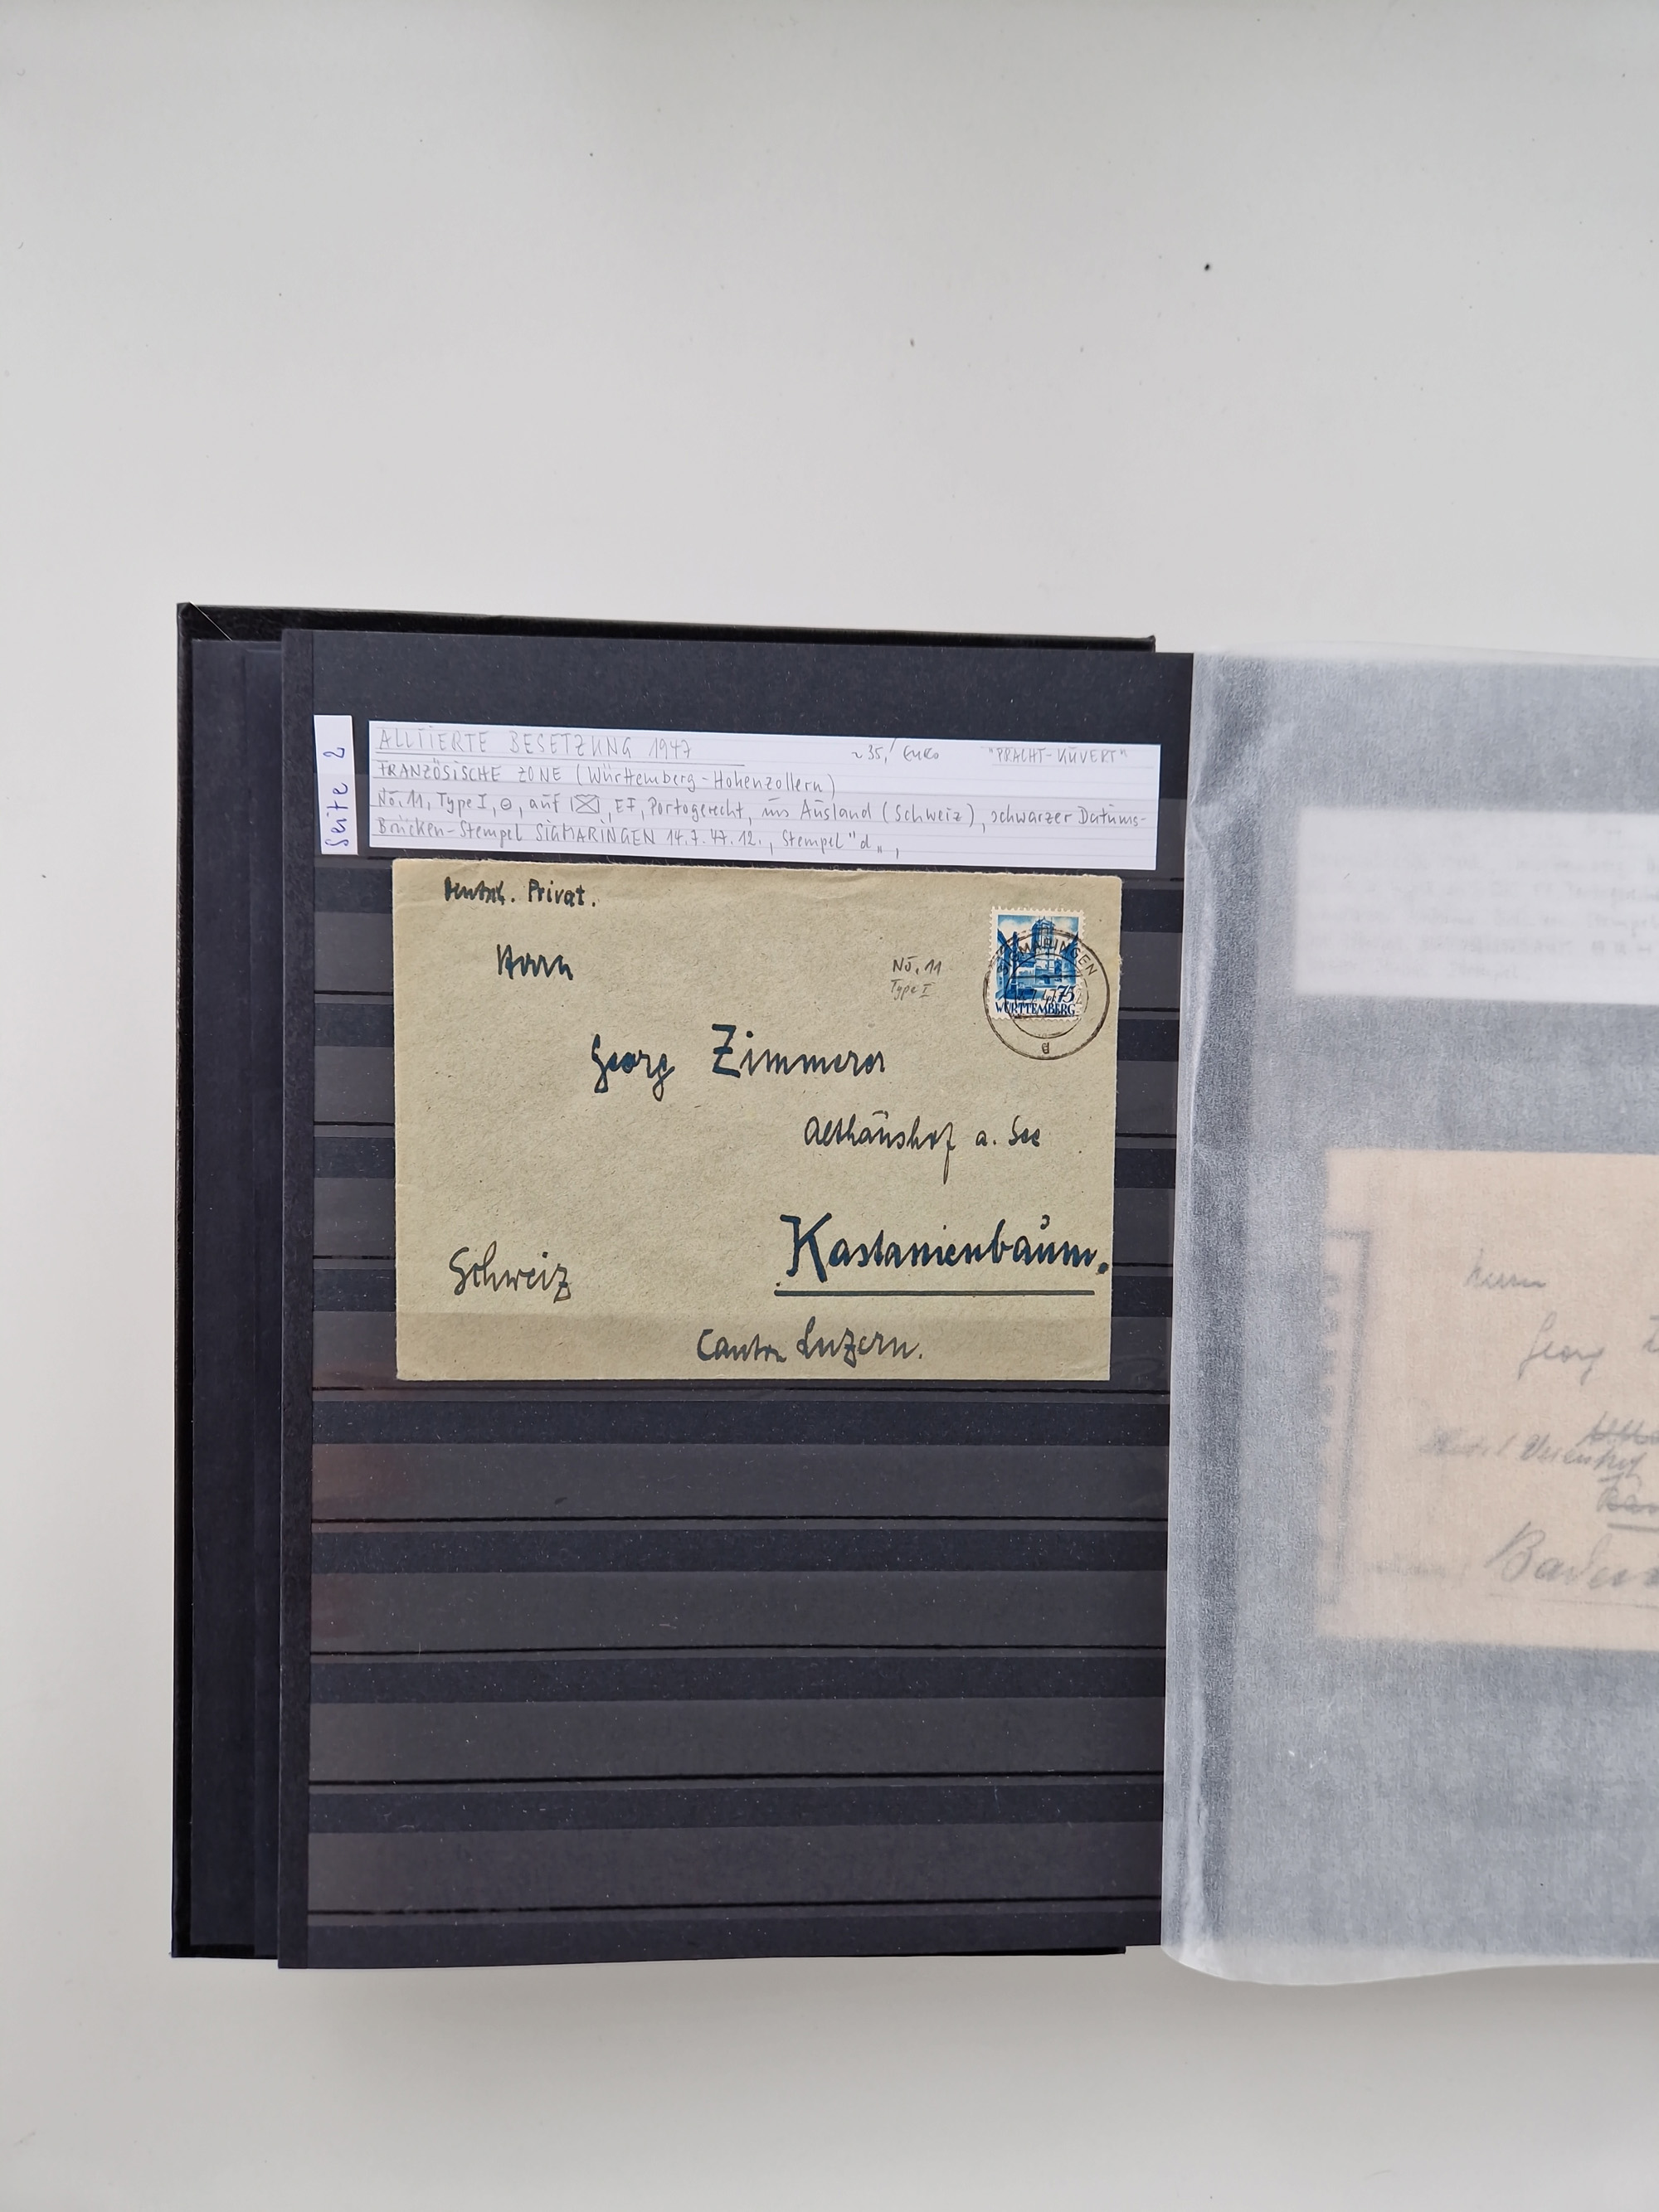 Seite 2
ALLIIERTE BESETZUNG 1947 ~35,- Euro "PRACHT-KUVERT"
FRANZÖSISCHE ZONE (Württemberg-Hohenzollern)
No. 11, Type I, auf EF, Portogerecht, ins Ausland (Schweiz), schwarzer Datums-
Brücken-Stempel SIGMARINGEN 14.7.47.12., Stempel "d",
Deutsch. Privat.
Herrn
No. 11
Type I
SIGMARINGEN
75
WÜRTTEMBERG
d
Georg Zimmerer
Althaushof a. See
Kastanienbaum.
Schweiz
Canton Luzern.
Herrn
Georg
Baden